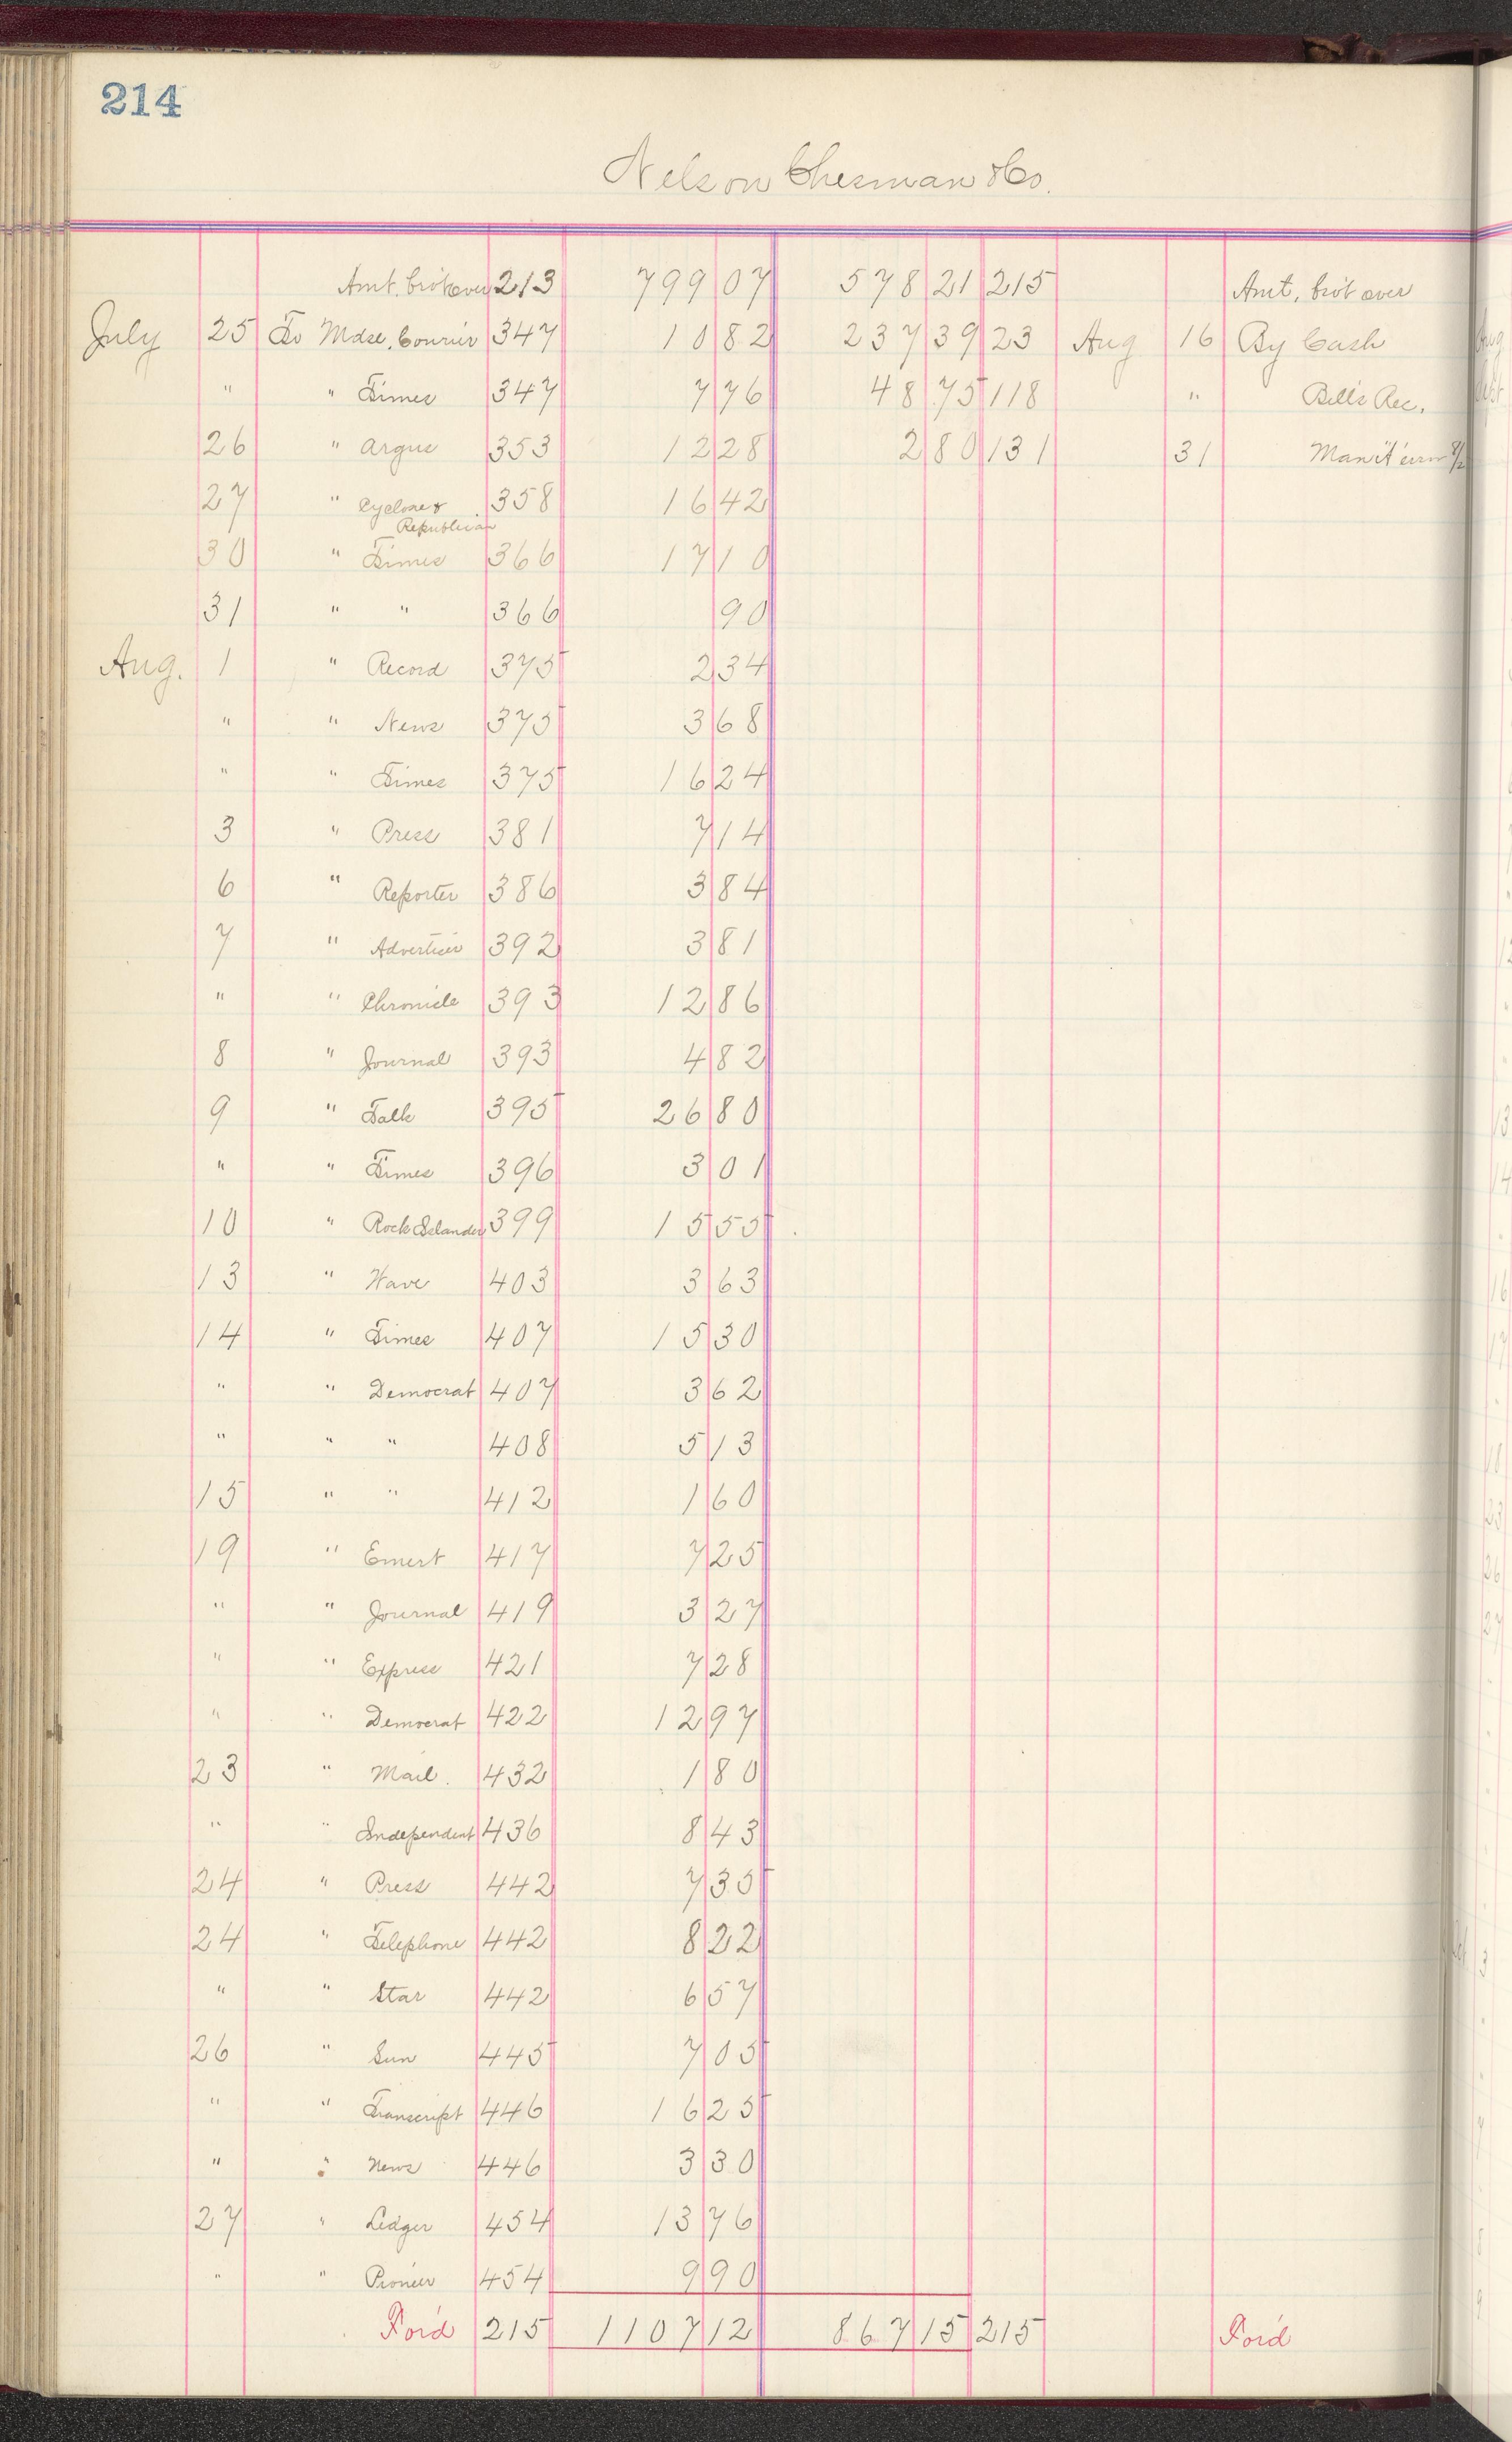 214
Nelson Chesman & Co.
Amt. bro't over 213 799 07 578 21 215 Amt. bro't over
July 25 To Mdse. Courier 347 10 82 237 39 23 Aug 16 By Cash
" " Times 347 7 76 48 75 118 " Bills Rec.
26 " Argus 353 12 28 2 80 131 31 Man't
27 " Cyclone & 358 16 42
Republican
30 " Times 366 17 10
31 " " 366 90
Aug. 1 " Record 375 2 34
" " News 375 3 68
" " Times 375 16 24
3 " Press 381 7 14
6 " Reporter 386 3 84
7 " Advertiser 392 3 81
" " Chronicle 393 12 86
8 " Journal 393 4 82
9 " Talk 395 26 80
" " Times 396 3 01
10 " Rock Islander 399 15 55
13 " Wave 403 3 63
14 " Times 407 15 30
" " Democrat 407 3 62
" " " 408 5 13
15 " " 412 1 60
19 " Emert 417 7 25
" " Journal 419 3 27
" " Express 421 7 28
" " Democrat 422 12 97
23 " Mail. 432 1 80
" " Independent 436 8 43
24 " Press 442 7 35
24 " Telephone 442 8 22
" " Star 442 6 57
26 " Sun 445 7 05
" " Transcript 446 16 25
" " News 446 3 30
27 " Ledger 454 13 76
" " Pioneer 454 9 90
For'd 215 1107 12 867 15 215 For'd